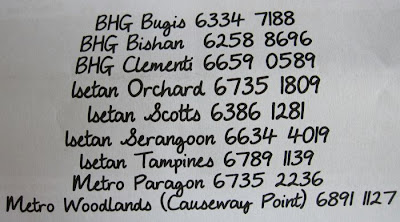 BHG Bugis 6334 7188
BHG Bishan 6258 8696
BHG Clementi 6659 0589
Isetan Orchard 6735 1809
Isetan Scotts 6386 1281
Isetan Serangoon 6634 4019
Isetan Tampines 6789 1139
Metro Paragon 6735 2236
Metro Woodlands (Causeway Point) 6891 1127